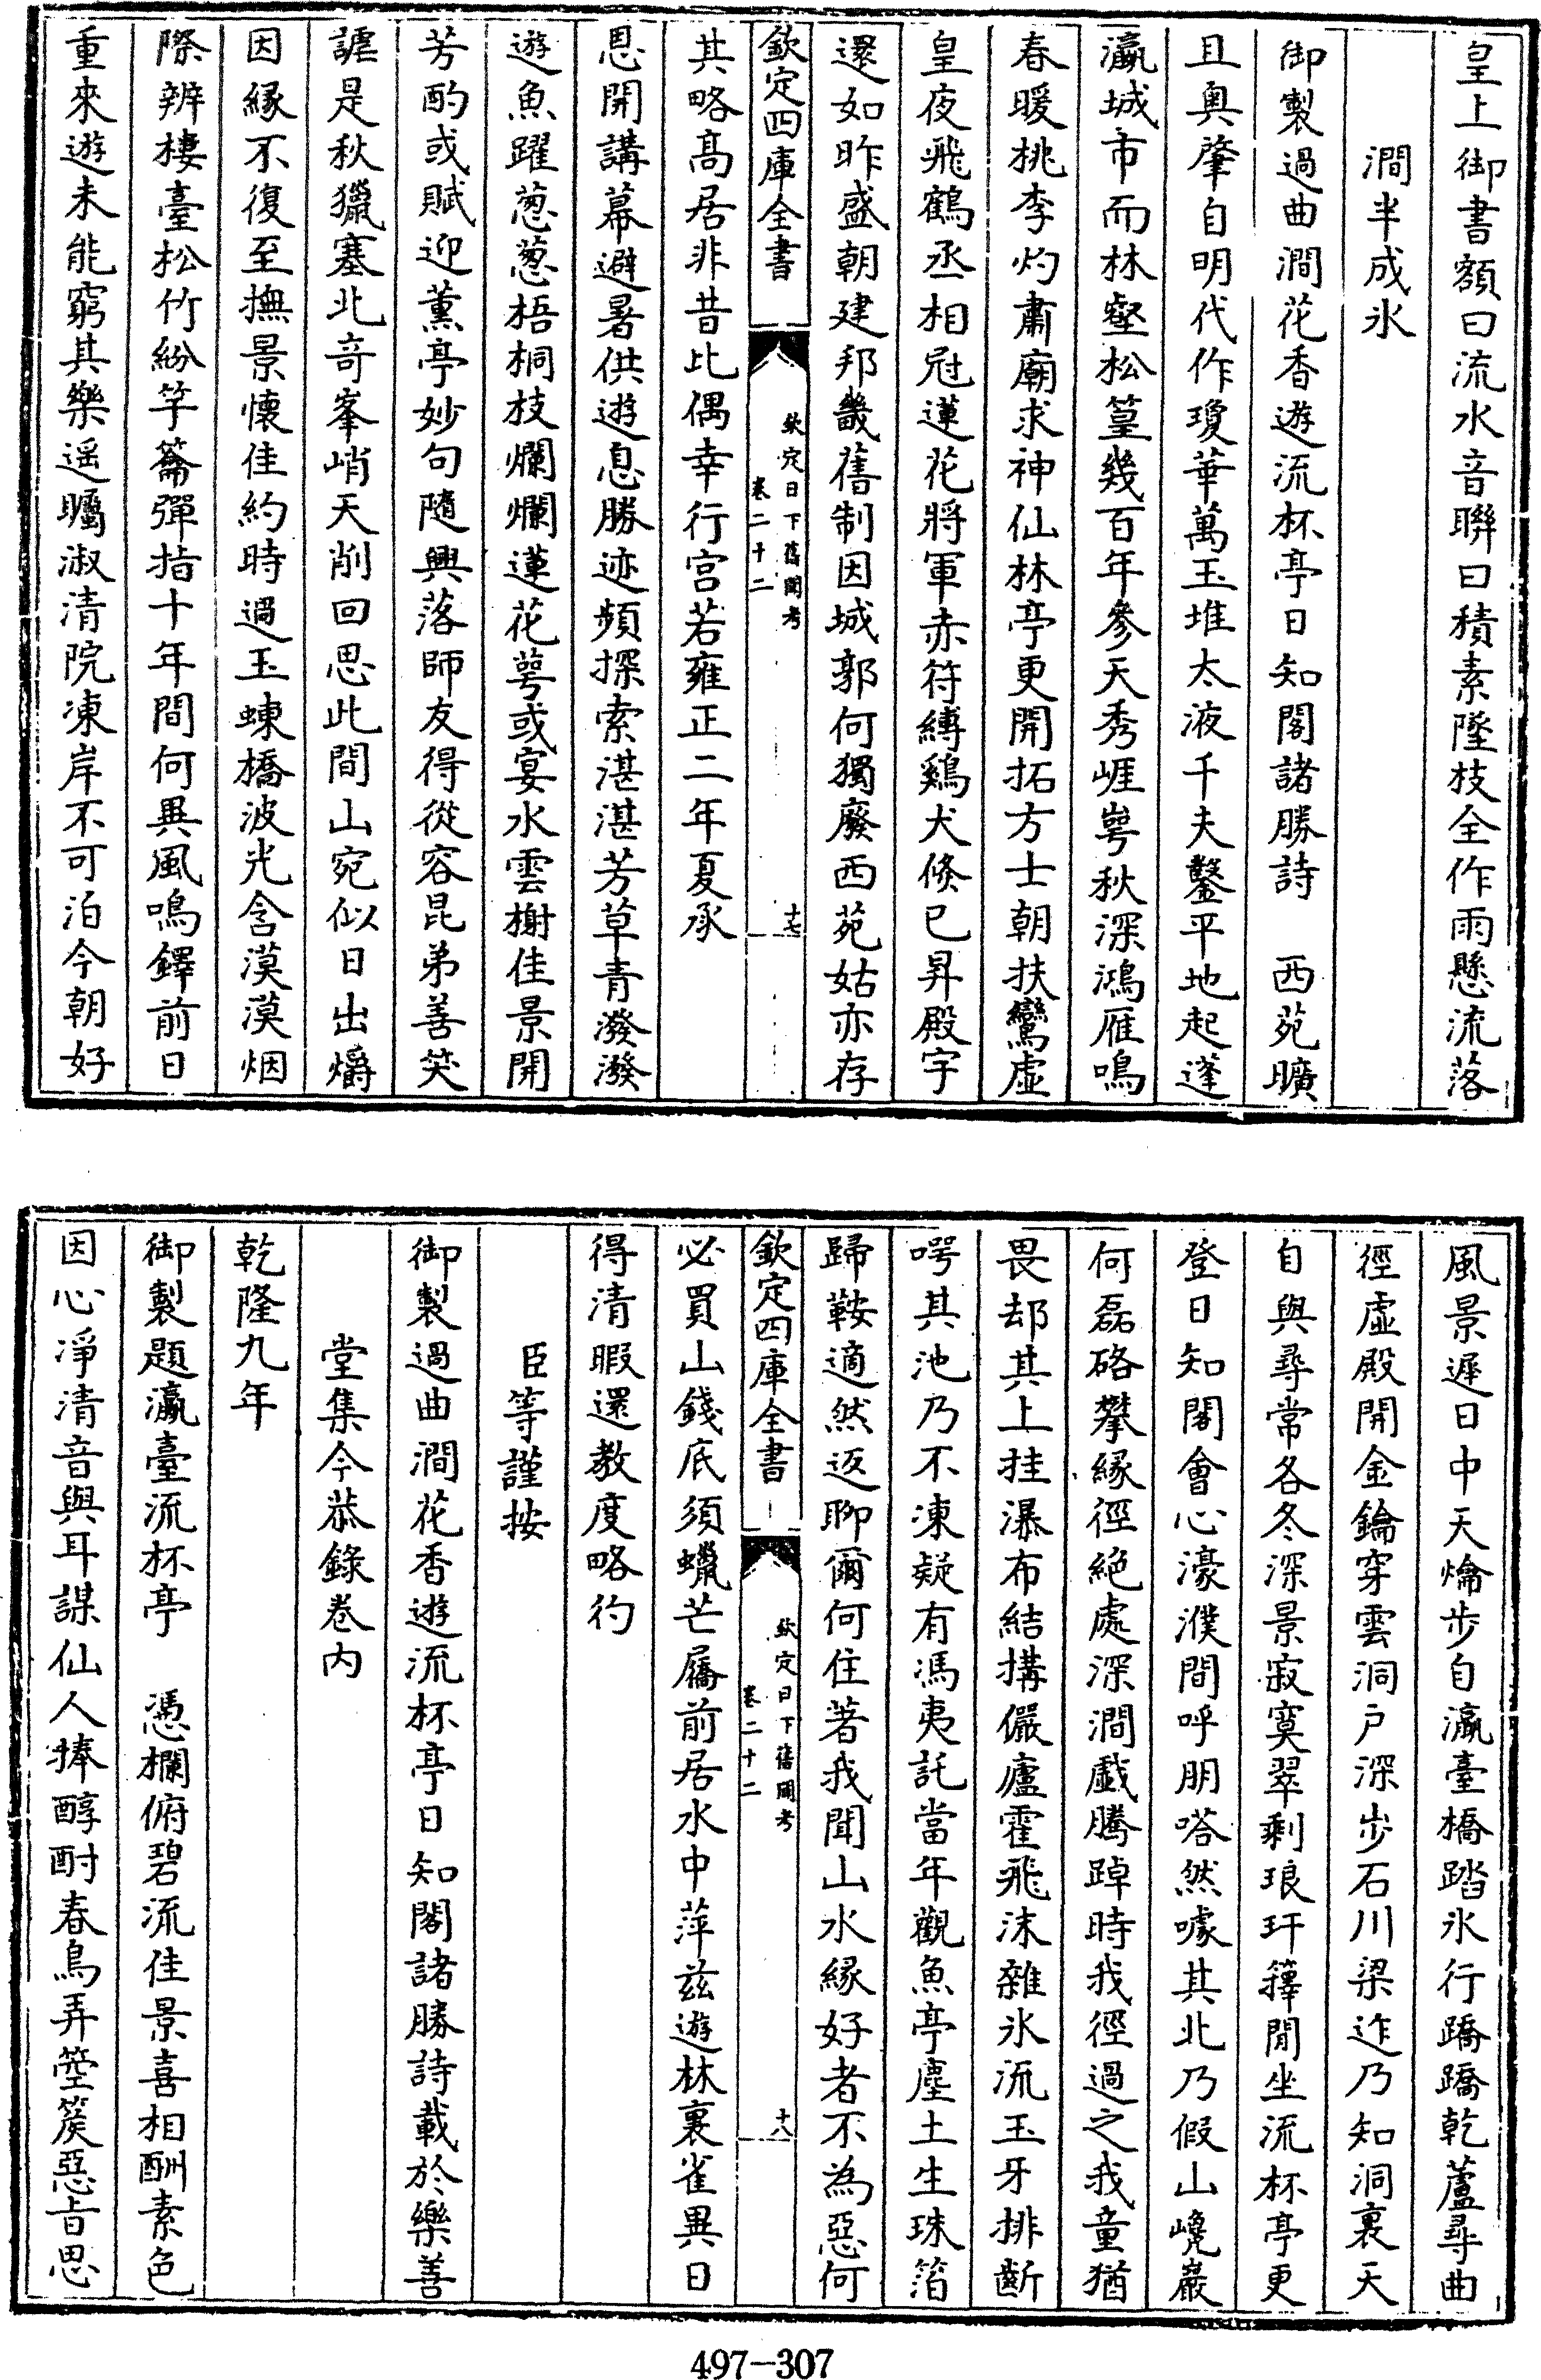 皇上御書額曰流水音聯曰積素墜枝全作雨懸流落
澗半成氷
御製過曲澗花香遊流杯亭日知閣諸勝詩　西苑曠
且奧肇自明代作瓊華萬玉堆太液千夫鑿平地起蓬
瀛城市而林壑松篁幾百年參天秀崕崿秋深鴻雁鳴
春暖桃李灼肅廟求神仙林亭更開拓方士朝扶鸞虛
皇夜飛鶴丞相冠蓮花將軍赤符縛鷄犬倏已昇殿宇
還如昨盛朝建邦畿舊制因城郭何獨廢西苑姑亦存
欽定四庫全書
欽定日下舊聞考
卷二十二
十七
其略髙居非昔比偶幸行宫若雍正二年夏承
恩開講幕避暑供遊息勝迹頻探索湛湛芳草青潑潑
遊魚躍葱葱梧桐枝爛爛蓮花萼或宴水雲榭佳景開
芳酌或賦迎薫亭妙句隨興落師友得從容昆弟善笑
謔是秋獵塞北竒峯峭天削回思此間山宛似日出爝
因緣不復至撫景懐佳約時過玉蝀橋波光含漠漠烟
際辨樓臺松竹紛竽籥彈指十年間何異風鳴鐸前日
重來遊未能窮其樂遥矚淑清院凍岸不可泊今朝好
風景遲日中天爚步自瀛臺橋踏氷行蹻蹻乾蘆尋曲
徑虛殿開金鑰穿雲洞户深步石川梁迮乃知洞裏天
自與尋常各冬深景寂寞翠剩琅玕籜閒坐流杯亭更
登日知閣會心濠濮間呼朋嗒然噱其北乃假山巉巖
何磊硌攀緣徑絶處深澗戲騰踔時我徑過之我童猶
畏却其上挂瀑布結搆儼廬霍飛沫雜氷流玉牙排齗
㖾其池乃不凍疑有馮夷託當年觀魚亭塵土生珠箔
歸鞍適然返聊爾何住著我聞山水緣好者不為惡何
欽定四庫全書
欽定日下舊聞考
卷二十二
十八
必買山錢底須蠟芒屩前居水中萍兹遊林裏雀異日
得清暇還教度略彴
臣等謹按
御製過曲澗花香遊流杯亭日知閣諸勝詩載於樂善
堂集今恭錄卷内
乾隆九年
御製題瀛臺流杯亭　憑欄俯碧流佳景喜相酬素色
因心淨清音與耳謀仙人捧醇酎春鳥弄箜篌惡㫖思
497—307